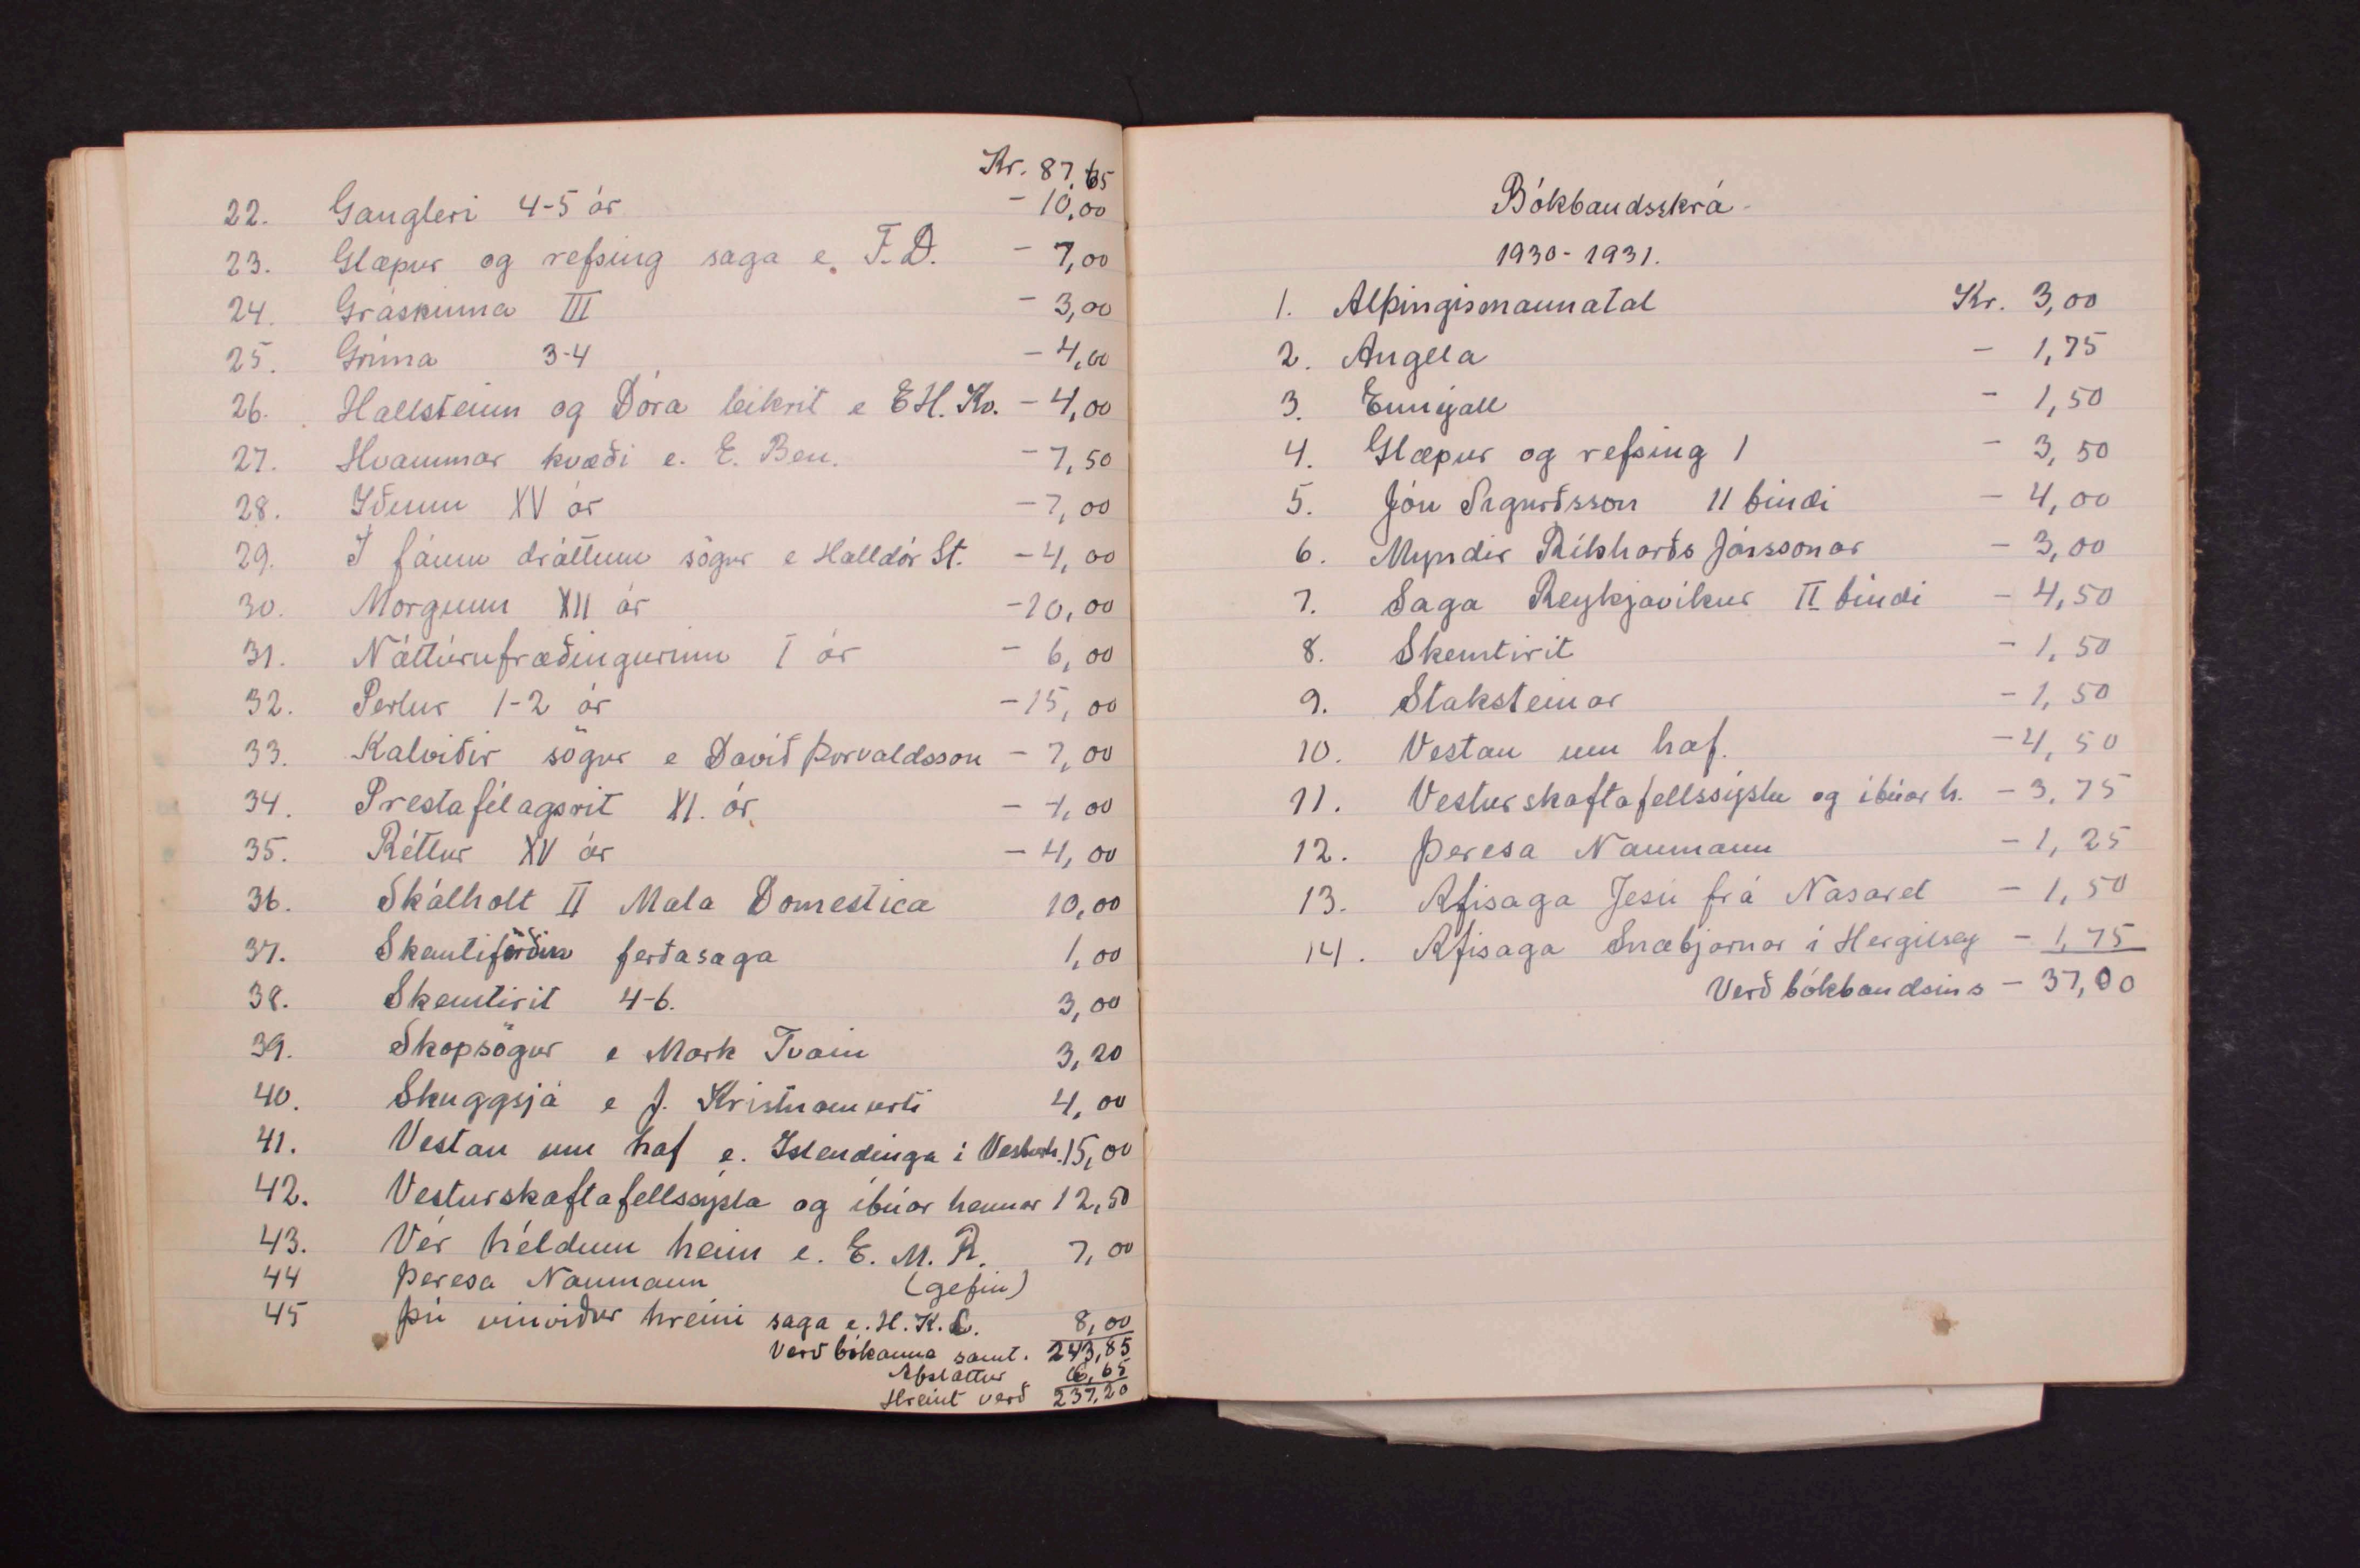 Kr. 87,65
22. Gangleri 4-5 ár - 10,00
23. Glæpur og refsing saga e. F.D. - 7,00
24. Gráskinna III - 3,00
25. Gríma 3-4 - 4,00
26. Hallsteinn og Dóra leikrit e E.H. Kv. - 4,00
27. Hvammar kvæði e. E. Ben. - 7,50
28. Iðunn XV ár - 7,00
29. Í fáum dráttum sögur e Halldór St. - 4,00
30. Morgunn XII ár - 10,00
31. Náttúrufræðingurinn I ár - 6,00
32. Perlur 1-2 ár - 15,00
33. Kalviðir sögur e Davíð Þorvaldsson - 7,00
34. Prestafélagsrit XI. ár - 4,00
35. Réttur XV ár - 4,00
36. Skálholt II Mala Domestica 10,00
37. Skemtiförðin ferðasaga 1,00
38. Skemtirit 4-6. 3,00
39. Skopsögur e Mark Tvain 3,20
40. Skuggsjá e J. Kristnamurti 4,00
41. Vestan um haf e. Islendinga í Vesturh. 15,00
42. Vesturskaftafellssýsla og íbúar hennar 12,50
43. Vér héldum heim e. E. M. R. 7,00
44 Þeresa Naumann (gefin)
45 Þú vínviður hreini saga e. H.K.L. 8,00
Verð bókanna samt. 243,85
Afsláttur 6,65
Hreint verð 237,20
Bókbandsskrá
1930-1931.
1. Alþingismannatal Kr. 3,00
2. Angela - 1,75
3. Ennýall - 1,50
4. Glæpur og refsing I - 3,50
5. Jón Sigurðsson II bindi - 4,00
6. Myndir Ríkharðs Jónssonar - 3,00
7. Saga Reykjavíkur II bindi - 4,50
8. Skemtirit - 1,50
9. Staksteinar - 1,50
10. Vestan um haf. - 4,50
11. Vesturskaftafellssýslu og íbúar h. - 3,75
12. Þeresa Naumann - 1,25
13. Æfisaga Jesú frá Nasaret - 1,50
14. Æfisaga Snæbjarnar í Hergilsey - 1,75
Verð bókbandsins - 37,00